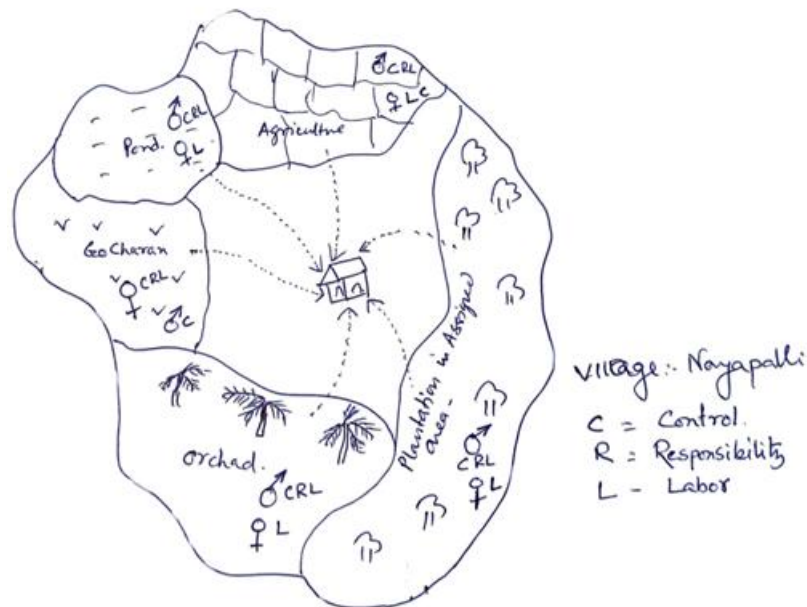 ♂CRL
♀LC
Agriculture
Pond.
♂CRL
♀L
GoCharan
♀CRL
♂C
Plantation in Assigned
area-
♂CRL
♀L
Orchad.
♂CRL
♀L
Village:- Nayapalli
C = Control.
R = Responsibility
L - Labor